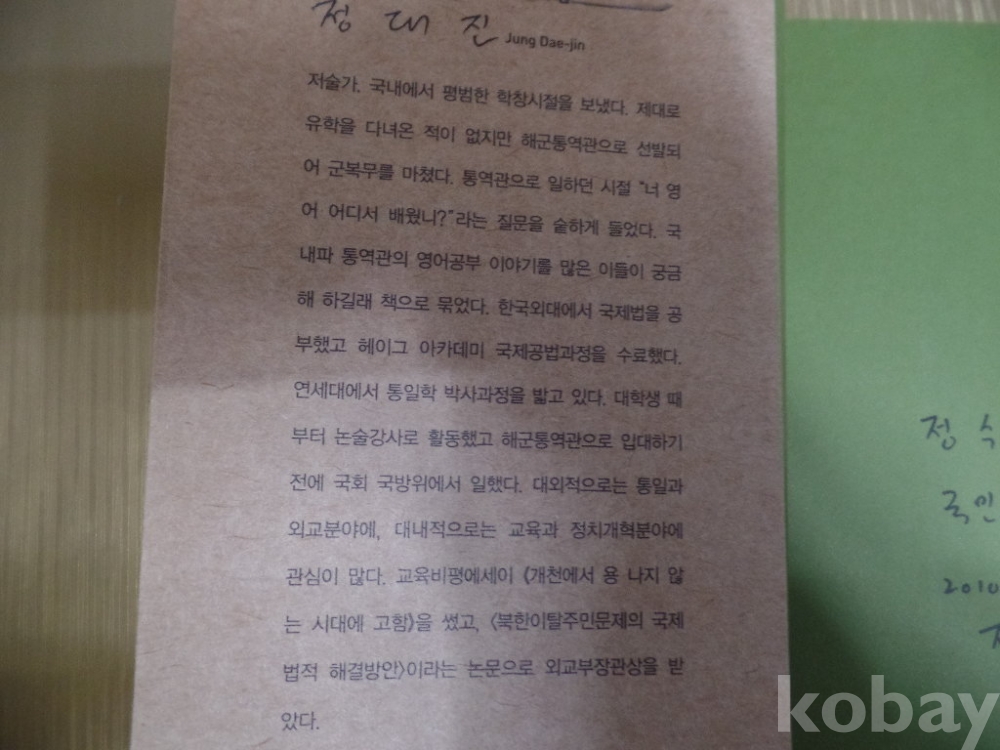 정 대 진 Jung Dae-jin
저술가. 국내에서 평범한 학창시절을 보냈다. 제대로
유학을 다녀온 적이 없지만 해군통역관으로 선발되
어 군복무를 마쳤다. 통역관으로 일하던 시절 “너 영
어 어디서 배웠니?”라는 질문을 숱하게 들었다. 국
내파 통역관의 영어공부 이야기를 많은 이들이 궁금
해 하길래 책으로 묶었다. 한국외대에서 국제법을 공
부했고 헤이그 아카데미 국제공법과정을 수료했다.
연세대에서 통일학 박사과정을 밟고 있다. 대학생 때
부터 논술강사로 활동했고 해군통역관으로 입대하기
전에 국회 국방위에서 일했다. 대외적으로는 통일과
외교분야에, 대내적으로는 교육과 정치개혁분야에
관심이 많다. 교육비평에세이 《개천에서 용 나지 않
는 시대에 고함》을 썼고, 〈북한이탈주민문제의 국제
법적 해결방안〉이라는 논문으로 외교부장관상을 받
았다.
정 식
국민
2010
kobay